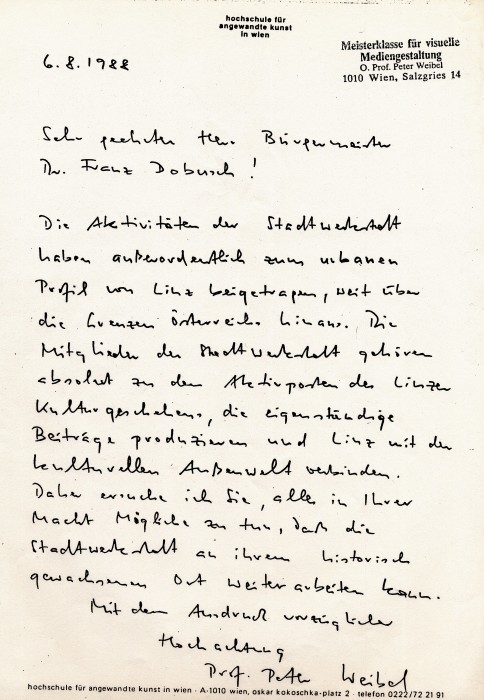 hochschule für
angewandte kunst
in wien
Meisterklasse für visuelle
Mediengestaltung
O. Prof. Peter Weibel
1010 Wien, Salzgries 14
6.8.1988
Sehr geehrter Herr Bürgermeister
Dr. Franz Dobusch!
Die Aktivitäten der Stadtwerkstatt
haben außerordentlich zum urbanen
Profil von Linz beigetragen, weit über
die Grenzen Österreichs hinaus. Die
Mitglieder der Stadtwerkstatt gehören
absolut zu den Aktivposten des Linzer
Kulturgeschehens, die eigenständige
Beiträge produzieren und Linz mit der
kulturellen Außenwelt verbinden.
Daher ersuche ich Sie, alles in Ihrer
Macht Mögliche zu tun, daß die
Stadtwerkstatt an ihrem historisch
gewachsenen Ort weiterarbeiten kann.
Mit dem Ausdruck vorzüglicher
Hochachtung
Prof. Peter Weibel
hochschule für angewandte kunst in wien · A-1010 wien, oskar kokoschka-platz 2 · telefon 0222/72 21 91